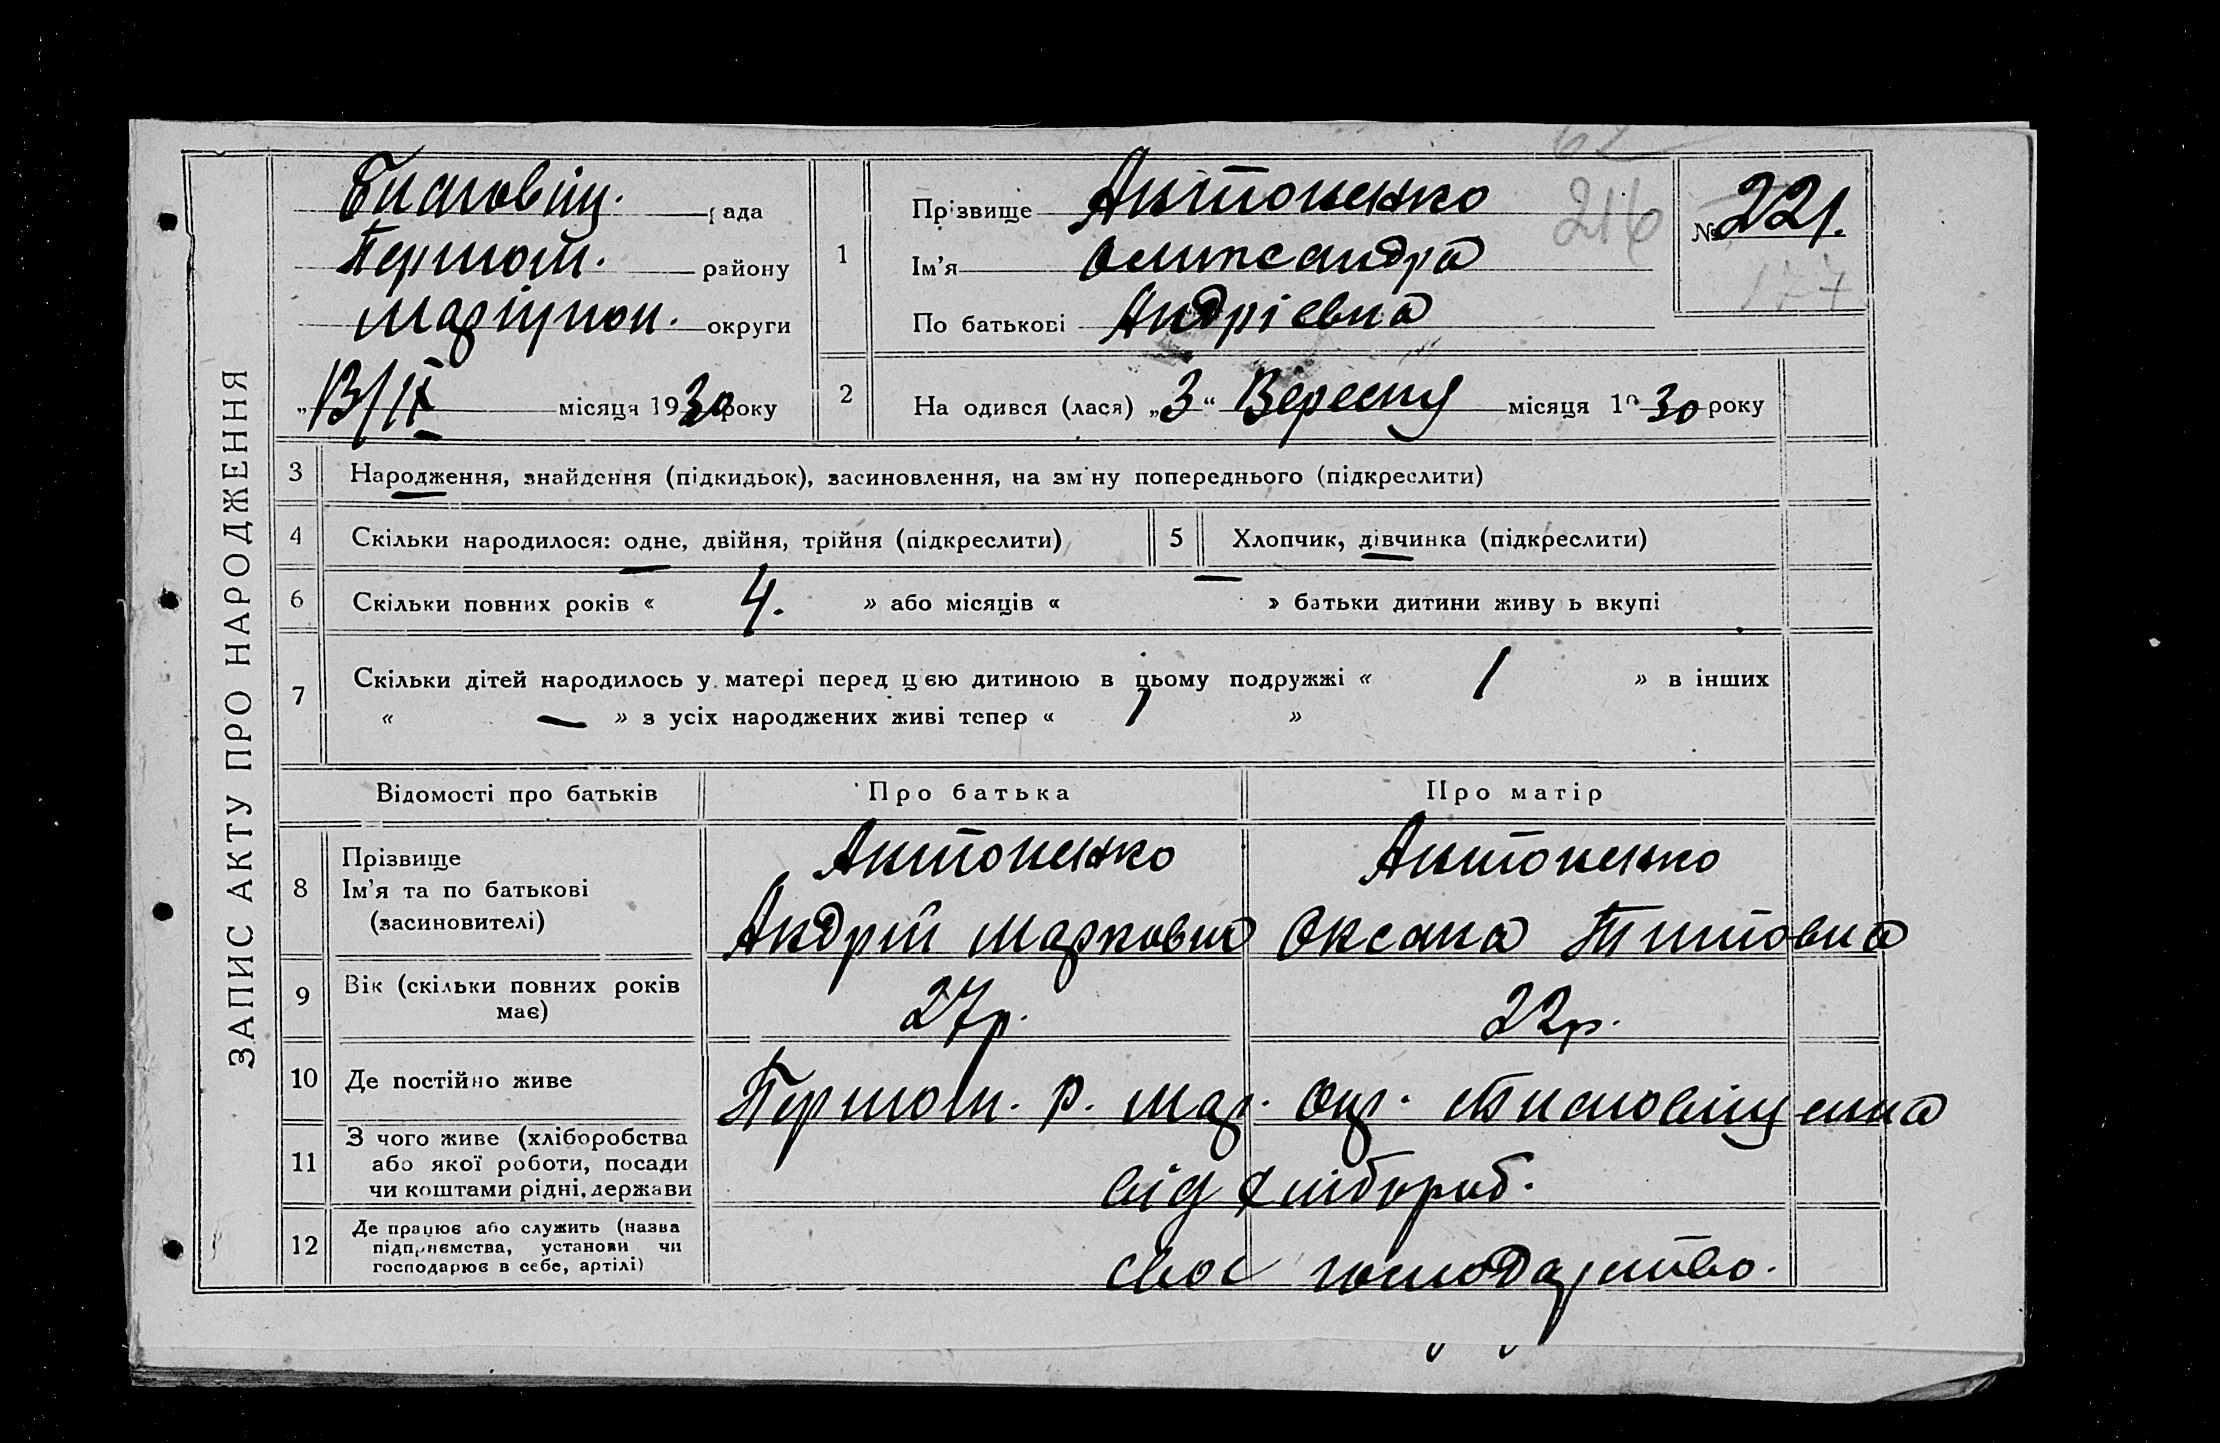 ЗАПИС АКТУ ПРО НАРОДЖЕННЯ
рада
Першот. району
Маріупол. округи
„13/IX місяця 1930 року
62
216
№ 221.
177
1
Прізвище Антоненко
Ім'я Олександра
По батькові Андрієвна
2 На одився (лася) „3“ Вересня місяця 19 30 року
3 Народження, знайдення (підкидьок), засиновлення, на зміну попереднього (підкреслити)
4 Скільки народилося: одне, двійня, трійня (підкреслити) 5 Хлопчик, дівчинка (підкреслити)
6 Скільки повних років « 4. » або місяців « — » батьки дитини живу ь вкупі
7 Скільки дітей народилось у матері перед цією дитиною в цьому подружжі « 1 » в інших
« — » з усіх народжених живі тепер « 1 »
Відомості про батьків Про батька Про матір
8 Прізвище Ім'я та по батькові (засиновителі)
Антоненко Антоненко
Андрій Маркович Оксана Титовна
9 Вік (скільки повних років має) 27р. 22р.
10 Де постійно живе Першот. р. Мар. Окр.
11 З чого живе (хліборобства або якої роботи, посади чи коштами рідні, держави від хлібороб.
12 Де працює або служить (назва підприємства, установи чи господарює в себе, артілі) своє господарство.